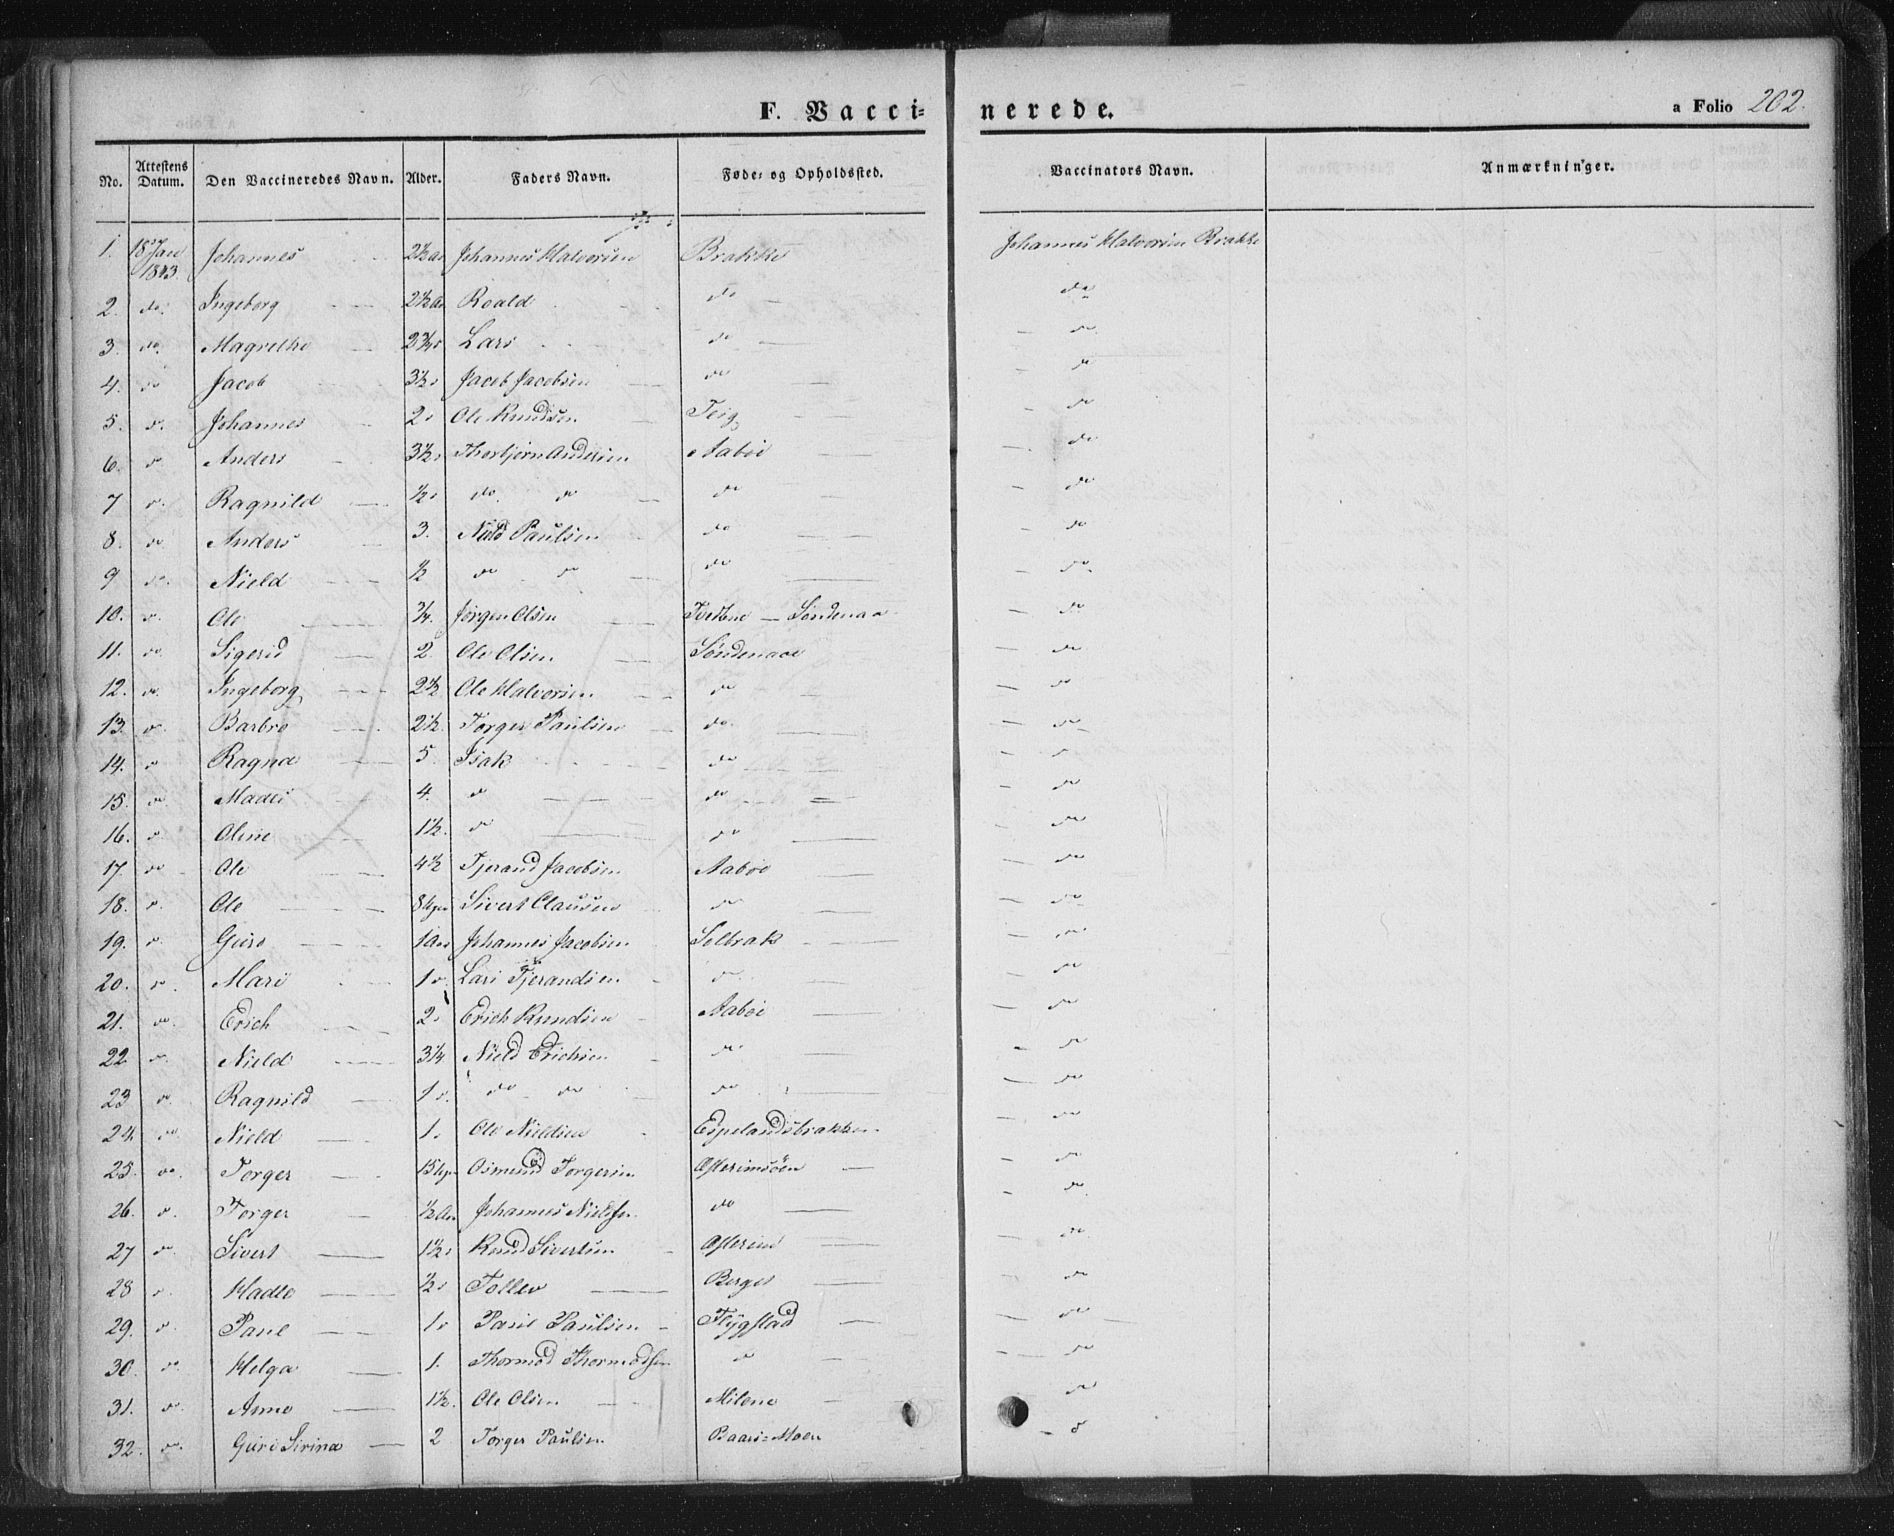 F. Vacci= nerede. a Folio 202.
No. Attestens Datum. Den Vaccineredes Navn. Alder. Faders Navn. Føde= og Opholdssted. Vaccinators Navn. Anmærkninger.
1. 18 Jan 1843. Johannes 2½ Johannes Halvorsen Brakke Johannes Halvorsen Brakke
2. do. Ingeborg 2½ Roald do do
3. do. Magrethe 2¾ Lars do do
4. do Jacob 3½ Jacob Jacobsen do do
5. do. Johannes 2 Ole Knudsen Teig do
6. do Anders 3½ Thorbjørn Andersen Aaboe do
7 do. Ragnild ½ do. do do do
8. do Anders 3. Nield Paulsen do do
9 do. Nield ½ do do do do.
10. do. Ole ¾. Jørgen Olsen Tvethne — Søndenaa do
11. do. Sigerid 2. Ole Olsen Søndenaae do
12. do. Ingeborg 2½ Ole Halvorsen do do
13. do. Barbro 2½. Torger Paulsen do. do
14. do Ragna 5. Isak do do
15. do 4. do do do
16. do. Oline 1½. do do do
17. do Ole 4½ Tjerand Jacobsen Aaboe do
18. do. Ole 8 Sivert Clausen do do
19. do. Guro 1 Johannes Jacobsen Solbrak do
20. do. Mari 1 Lars Tjerandsen do. do
21. do. Erich 2 Erich Knudsen Aaboe do
22 do. Nield 3¼. Nield Erichsen do do
23 do. Ragnild 1 do do do do
24. do. Nield 1. Ole Nieldsen Espelandsbrakken do
25. do. Torger 15 Osmund Torgersen do
26. do. Torger ½ Johannes Nielsen do do.
27 do. Sivert 1½ Knud Sivertsen do
28 do. Hadle ½ Tollev Berge do
29. do. Paul 1 Paul Paulsen Flygstad do
30. do. Helga 1. Thormod Thormodsen do do
31. do. Anne 1½. Ole Olsen Milene do
32. do. Guri Sirina 2 Torger Paulsen Baars=Moen do